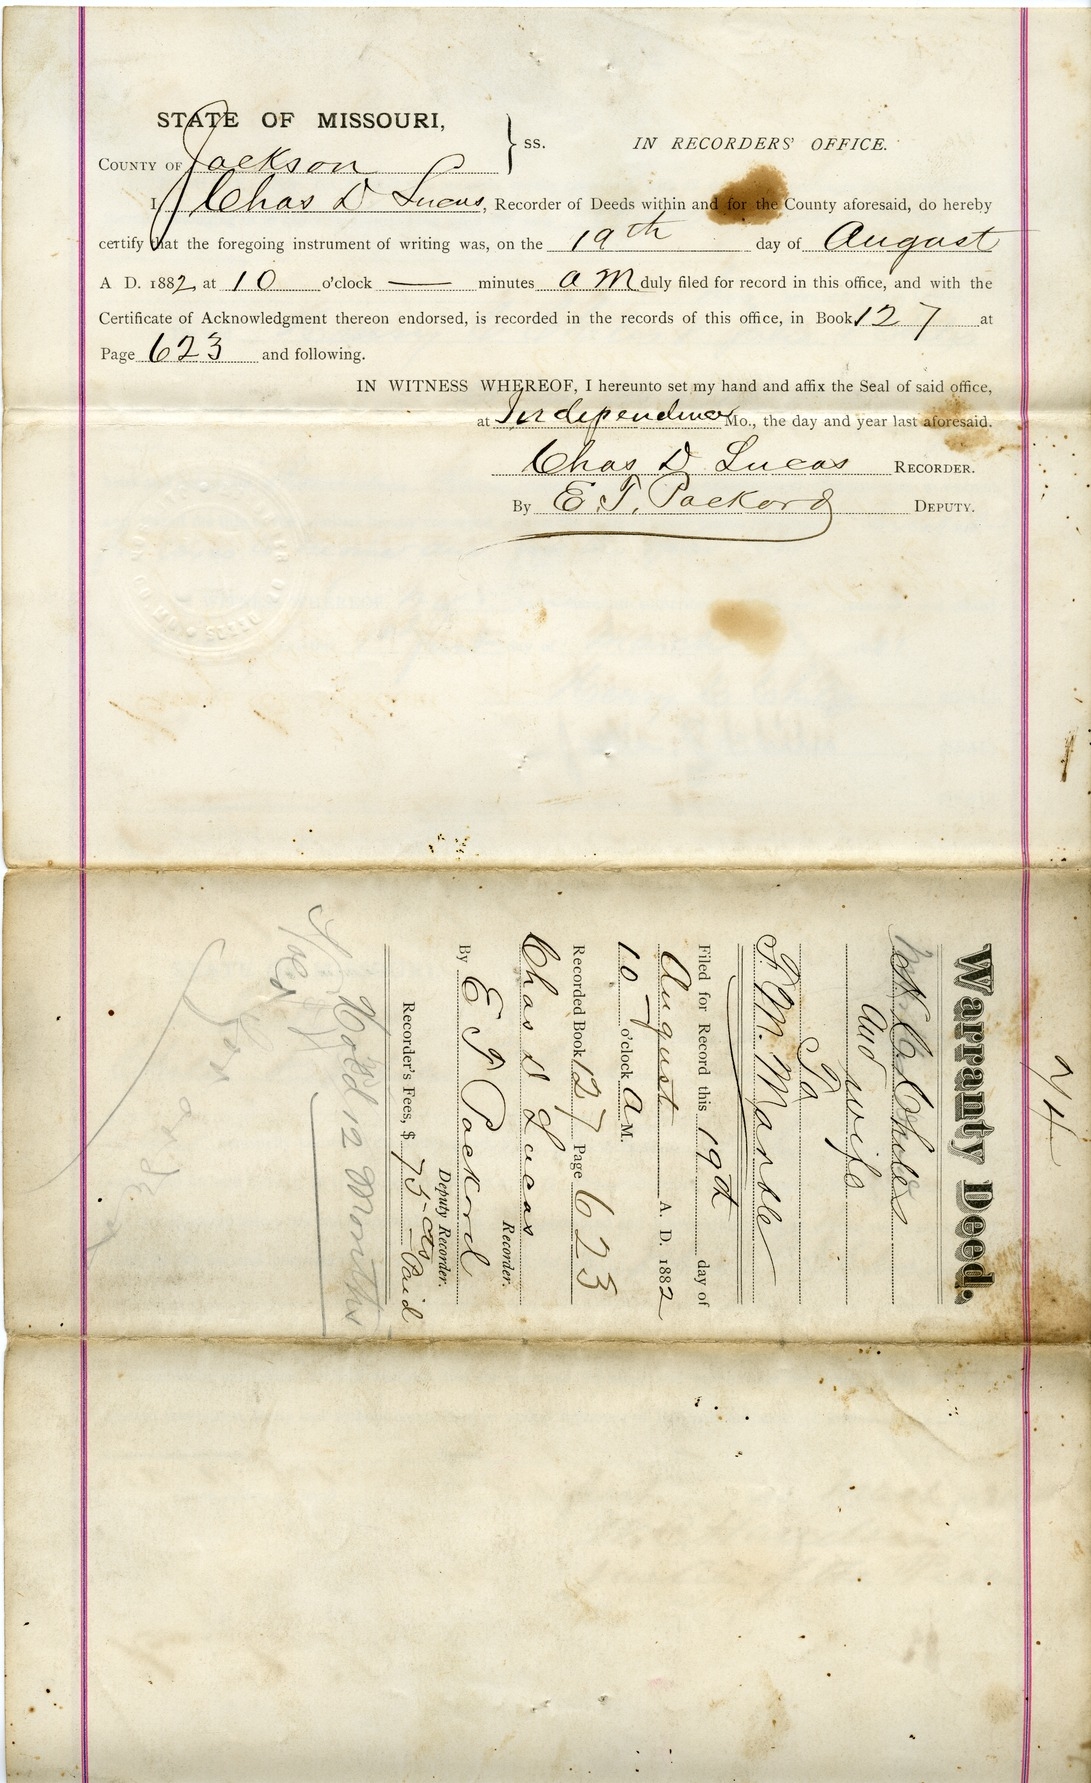 STATE OF MISSOURI,
COUNTY OF Jackson } ss. IN RECORDERS' OFFICE.
I, Chas D Lucas, Recorder of Deeds within and for the County aforesaid, do hereby
certify that the foregoing instrument of writing was, on the 19th day of August
A D. 1882 at 10 o'clock — minutes a M duly filed for record in this office, and with the
Certificate of Acknowledgment thereon endorsed, is recorded in the records of this office, in Book 127 at
Page 623 and following.
IN WITNESS WHEREOF, I hereunto set my hand and affix the Seal of said office,
at Independence Mo., the day and year last aforesaid.
Chas D Lucas RECORDER.
By E. T. Packard DEPUTY.
24
Warranty Deed.
C. Chiles
and wife
To
F. M. Marble
Filed for Record this 19th day of
August A. D. 1882
10 o'clock a M.
Recorded Book 127 Page 623
Chas D Lucas
Recorder.
By E T Packard
Deputy Recorder.
Recorder's Fees, $ 75 cts Paid
Hold 12 Months